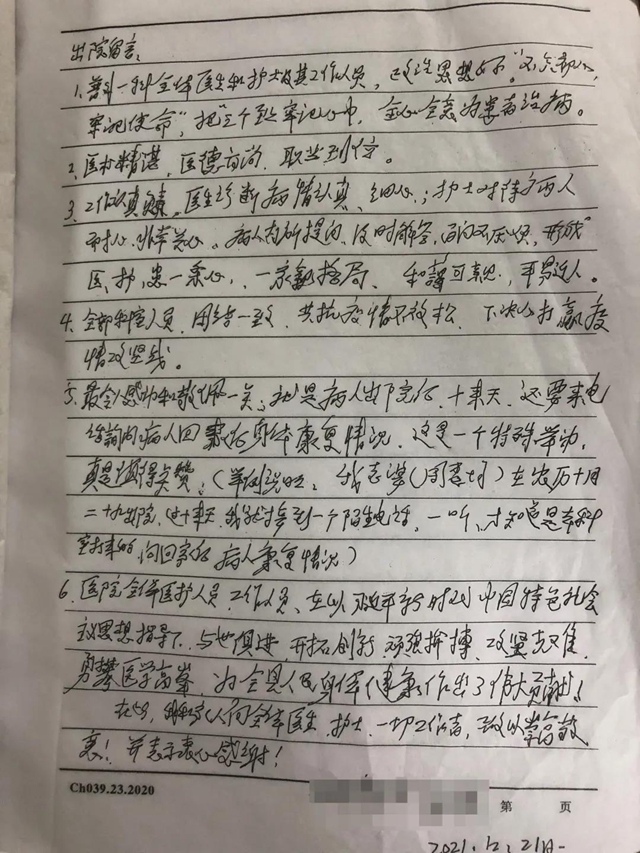 出院留言：
1. 普外一科全体医生和护士及其工作人员，政治思想好。"不忘初心，
牢记使命"，把三个至牢记心中，全心全意为患者治病。
2. 医术精湛，医德高尚，取业到位。
3. 工作认真，医生诊断病情认真、细心；护士对待病人
耐心、非常关心。病人有所提问，及时解答，百问不厌烦，形成"
医、护、患一条心，一家亲格局。和蔼可亲，平易近人。
4. 全部科室人员，团结一致，共抗疫情不放松，下决心打赢疫
情攻坚战。
5. 最令人感动和敬佩一点：就是病人出院后，十来天，还要来电
询问病人回家后身体康复情况，这是一个特殊举动，
真是值得点赞，（举例说明：我老婆（）在农历十月
二十九出院，这十来天，我就接到一个陌生电话，一听，才知道是本科
室打来的，问回家后病人康复情况）
6. 医院全体医护人员，工作人员，在以习近平新时代中国特色社会
主义思想指导下，与时俱进，开拓创新，顽强拼搏，攻坚克难，
勇攀医学高峰，为全县人民身体健康，作出了伟大贡献！
在此，我们家人向全体医生，护士，一切工作者，致以崇高敬
意！并表示衷心感谢！
Ch039.23.2020
第 页
2021.12.21日